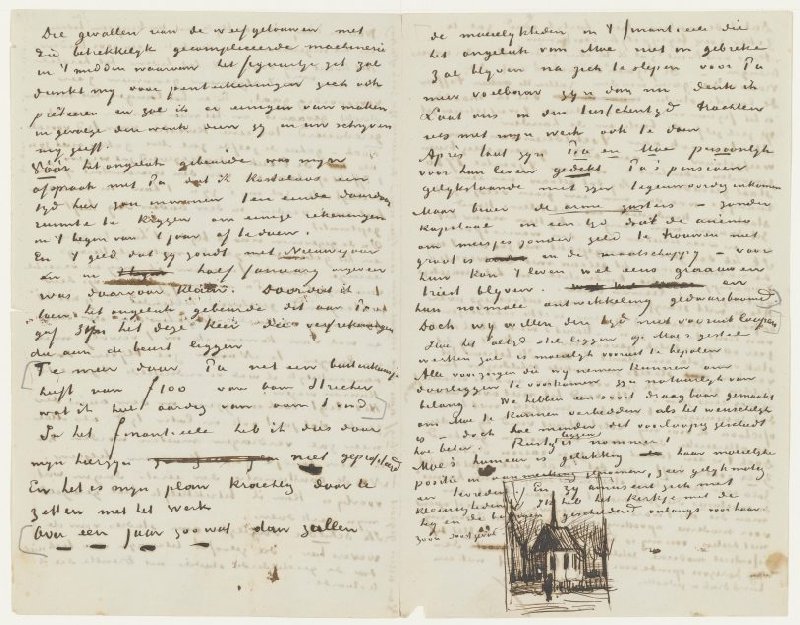 Die gevallen van de weefgetouwen met
die betrekkelijk gecompliceerde machinerie
in 't midden waarvan het figuurtje zit zal
dunkt mij, voor penteekeningen zich ook
en zal ik er eenigen van maken
in gevolge den wenk dien gij in uw schrijven
mij geeft.
Vóór het ongeluk gebeurde was mijn
afspraak met Pa dat ik kosteloos een
tijd hier zou inwonen ten einde daardoor
ruimte te krijgen om eenige rekeningen
in 't begin van 't jaar af te doen.
En 't geld dat gij zondt met Nieuwejaar
en in half Januarij
was daarvoor klaar. Doordat ik
toen het ongeluk gebeurde dit aan Pa
gaf zijn het deze keer die verfrekeningen
die aan de beurt liggen
Te meer daar Pa net een
heeft van f 100 van oom Stricker
wat ik heel aardig van oom S vind
In het finantieele heb ik dus door
mijn hierzijn niet geprofiteerd
En het is mijn plan krachtig door te
zetten met het werk
Over een jaar zoo wat dan zullen
de moeielijkheden in 't finantieele die
het ongeluk van Moe niet in gebreke
zal blijven na zich te slepen voor Pa
meer voelbaar zijn dan nu denk ik
Laat ons in dien tusschentijd trachten
iets met mijn werk ook te doen
Après tout zijn Pa en Moe persoonlijk
voor hun leven gedekt Pa's pensioen
gelijkstaande met zijn tegenwoordig inkomen
Maar broer de arme zusters – zonder
kapitaal in een tijd dat de animo
om meisjes zonder geld te trouwen niet
groot is in de maatschappij – voor
hun kan 't leven wel eens graauw en
triest blijven. en
hun normale ontwikkeling gedwarsboomd
Doch wij willen den tijd niet vooruit loopen
Hoe het altijd stil liggen op Moe's gestel
werken zal is moeielijk vooruit te bepalen
Alle voorzorgen die wij nemen kunnen om
doorliggen te voorkomen zijn natuurlijk van
belang. We hebben een soort draagbaar gemaakt
om Moe te kunnen verbedden als het wenschelijk
is – doch hoe minder dit voorloopig geschiedt
hoe beter. Rustig liggen is nommer 1
Moe's humeur is gelukkig haar moeielijke
positie in aanmerking genomen, zeer gelijkmatig
en tevreden. En zij amuseert zich met
kleinigheden. Ik heb het kerkje met de
heg en de boomen geschilderd onlangs voor haar
zoo'n soort geval